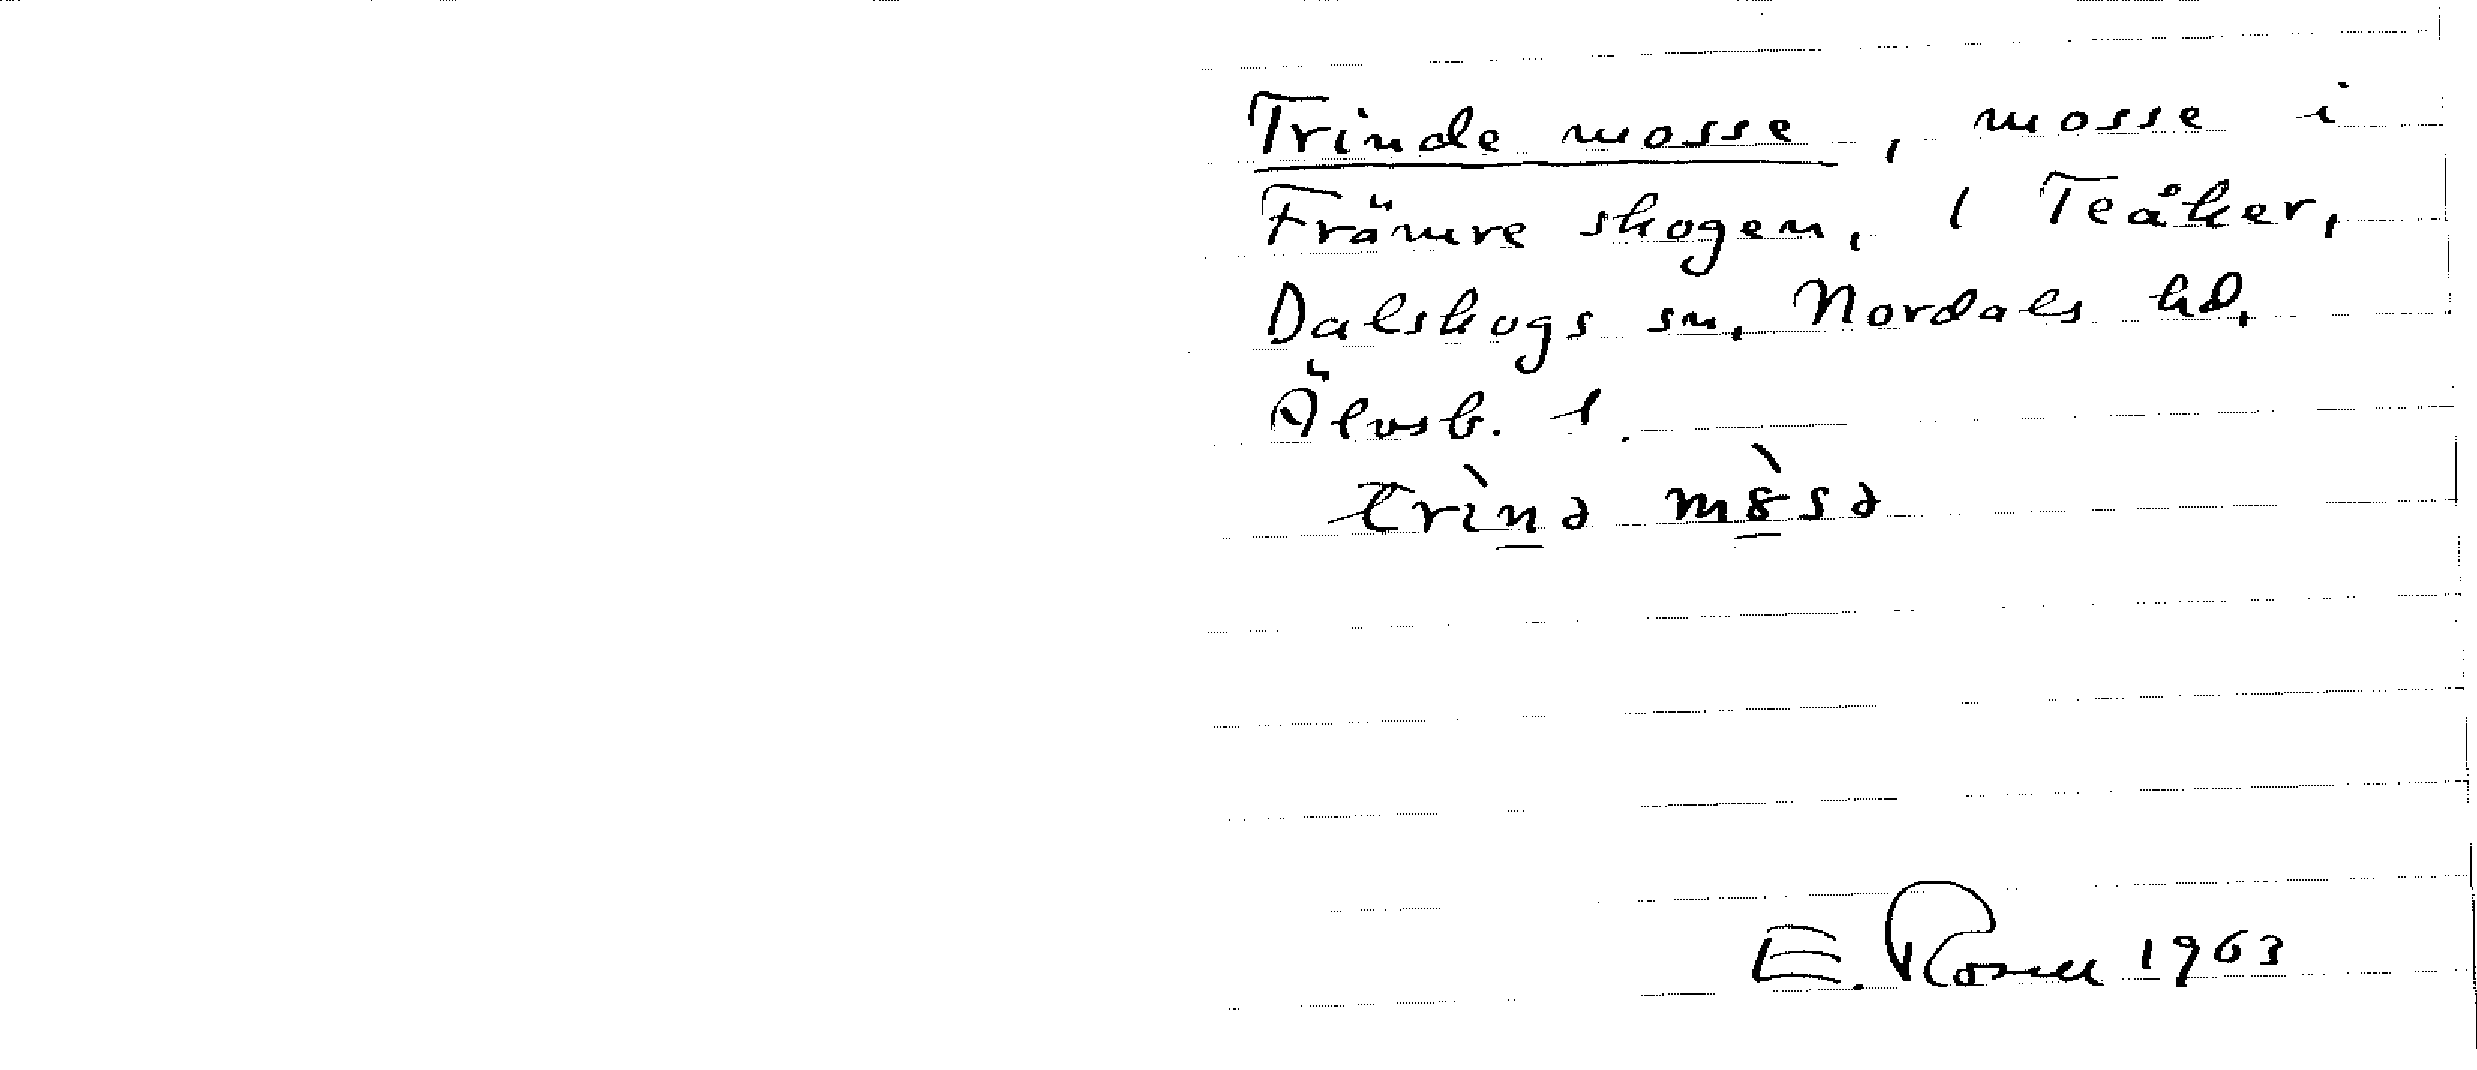 Trinde mosse, mosse i
Främre skogen, 1 Teåker,
Dalskogs sn, Nordals hd,
Älvsb. l.
trìnə mòsə
E. Rosell 1963